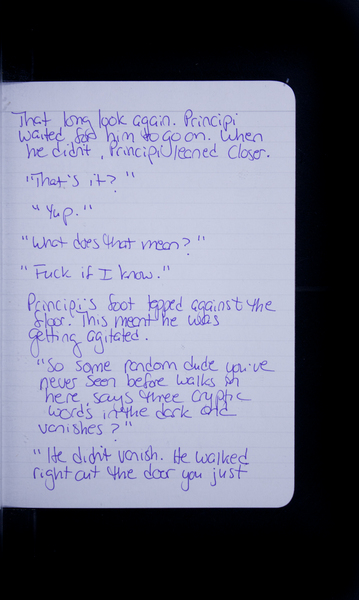 That long look again. Principi
waited for him to go on. When
he didn't, Principi leaned closer.
"That's it?"
"Yup."
"What does that mean?"
"Fuck if I know."
Principi's foot tapped against the
floor. This meant he was
getting agitated.
"So some random dude you've
never seen before walks in
here, says three cryptic
words in the dark and
vanishes?"
"He didn't vanish. He walked
right out the door you just